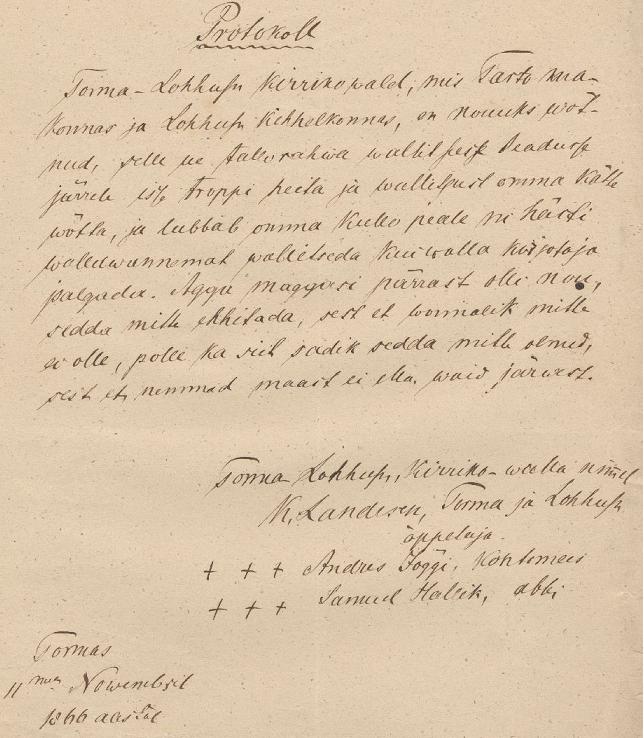 Protokoll
Torma-Lohhusu Kirrikowald, mis Tarto ma-
konnas ja Lohhusu kihhelkonnas, on nouuks wöt-
nud, selle ue tallorahwa wallitsusse seadusse
järrele üks troppi heita ja wallitsust omma kätte
wötta, ja lubbab omma kullo peale ni hästi
wallawannemat wallitseda kui walla kirjotaja
palgada. Agga maggasi pärrast olli nou,
sedda mitte ehhitada, sest et woimalik mitte
ei olle, polle ka siit sadik sedda mitte olnud,
sest et nemmad maast ei ella waid järwest.
Torma Lohhusu, Kirriko-walla nimmel
K. Landesen, Torma ja Lohhusu
öppetaja.
+ + + Andres Jöggi, Kohtomees
+ + + Samuel Hallik, abbi
Tormas
11mal Nowembril
1866 aastal